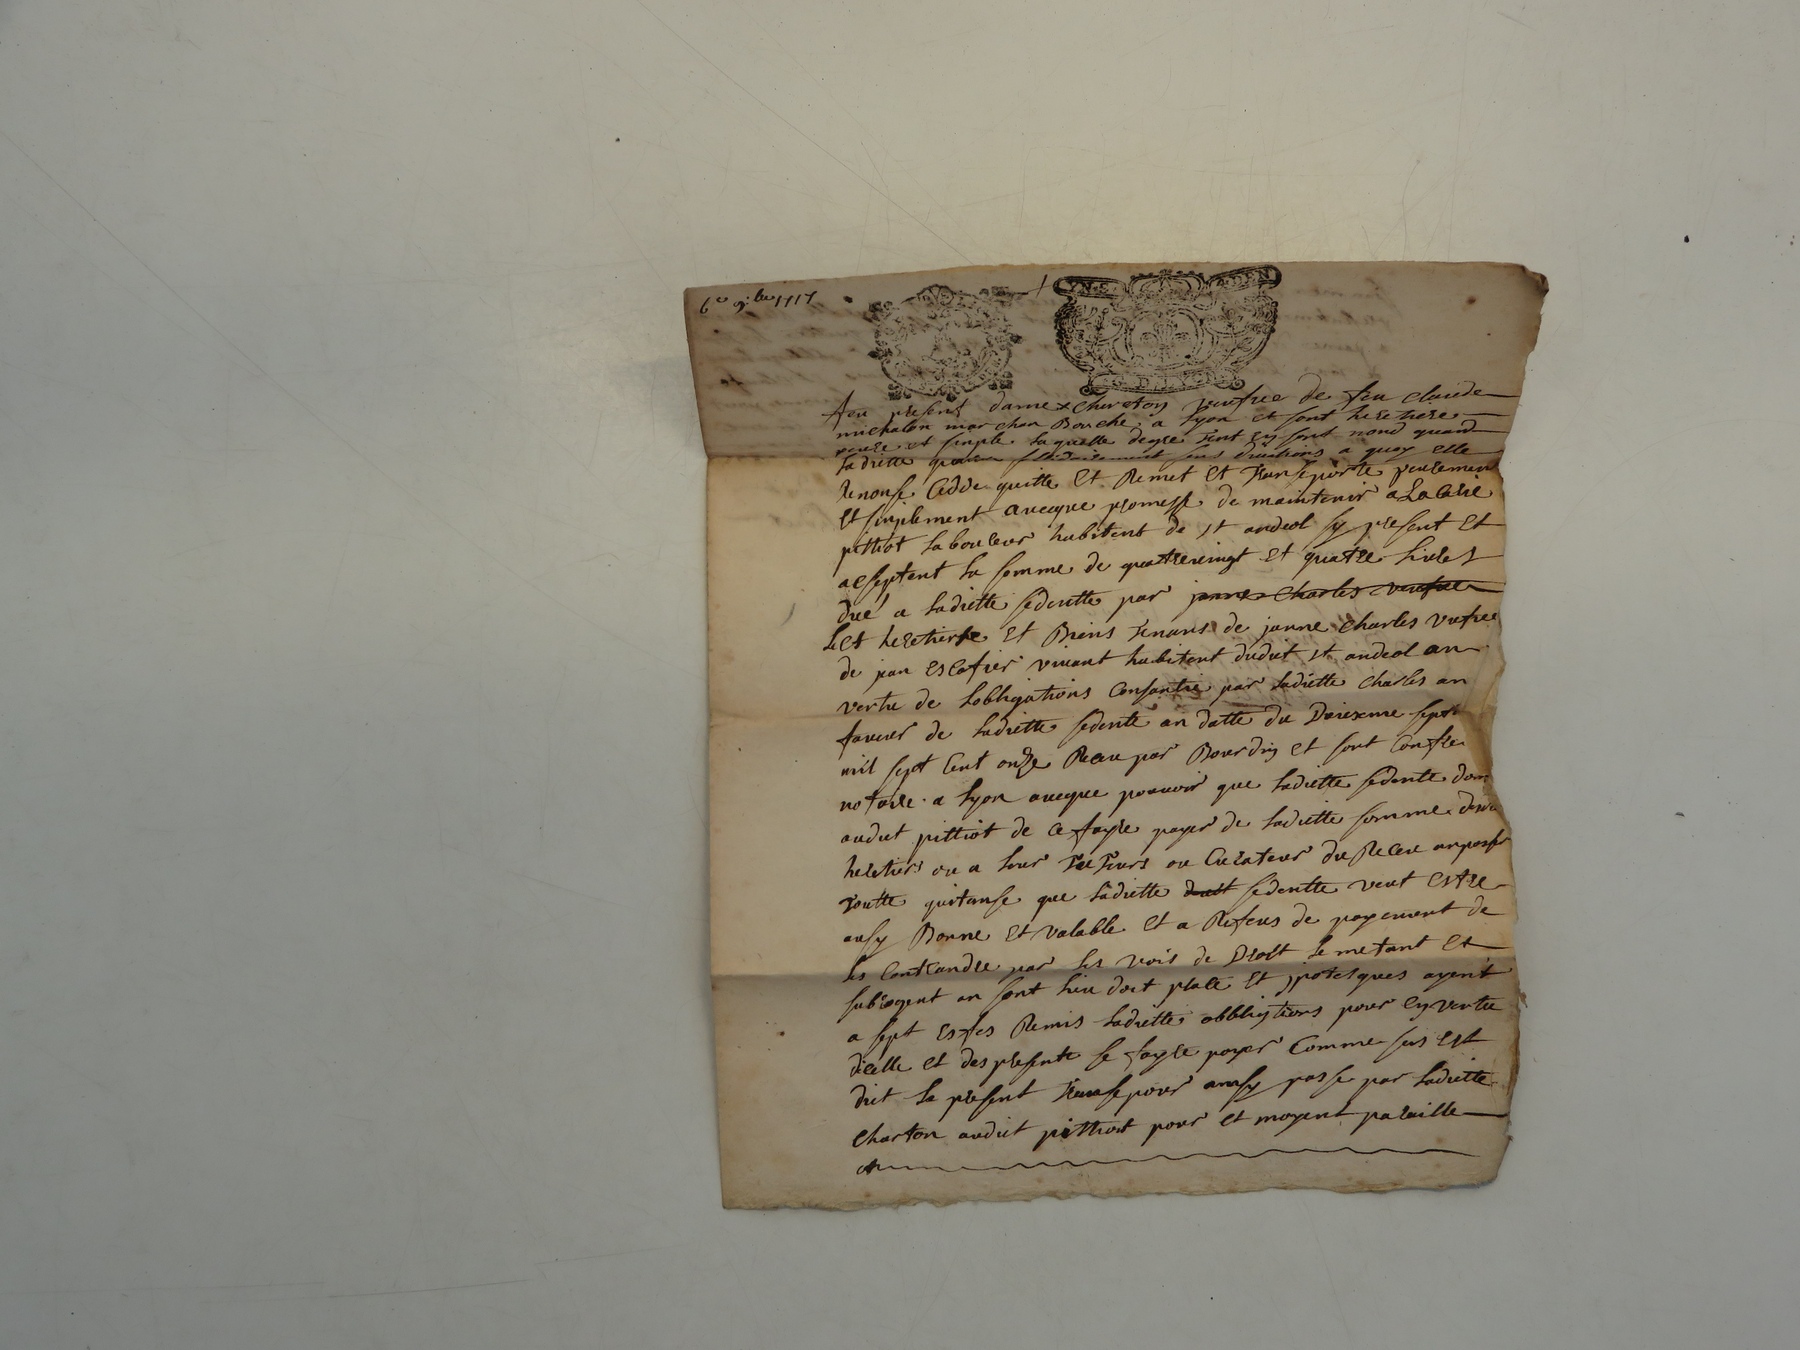 6e 9.bre 1717
VN S DEN
G. D. LYON
feu present dame x Chareton veufve de feu claude
michalon marchan Bouche a Lyon et sont heretiere
peure et simple laquelle degre font en sont nond quand
laditte sus divations a quoy elle
Renonse Cedde quitte Et Remet Et Transeporte peuremen
Et sinplement avecque promesse de maintenir a
pittiot laboureur habitent de st andeol sy present Et
aCseptent la somme de quattrevingt et quatre livres
due a laditte sedentte par janne Charles veufve
Les heretiers Et Biens Tenans de janne Charles vefve
de jan escofier vivant habitent dudit st andeol an
vertu de Lobligations Consantie par laditte Charles an
faveur de laditte sedente an datte du Daixeme sept
mil sept Cent onze Receu par Bourdin et sont Confre
notaire a Lyon avecque pouvoir que laditte sedente don
audit pittiot de Ce fayre payer de laditte somme
heretiers ou a leur Teuteurs ou Curateur du Receu anpasser
toutte quitanse que laditte duit sedentte veut estre
ausy Bonne et valable Et a Refeus de payement de
les Contrandre par les vois de Droit le metant et
subrogent an sont lieu doit place Et ypotesques ayent
a sept Esfes Remis laditte obbligtions pour en vertu
dicelle et des presente se fayre payer Comme sus est
dict la present Transepour ansy passe par laditte
Charton audict pitthiot pour et moyent paraille